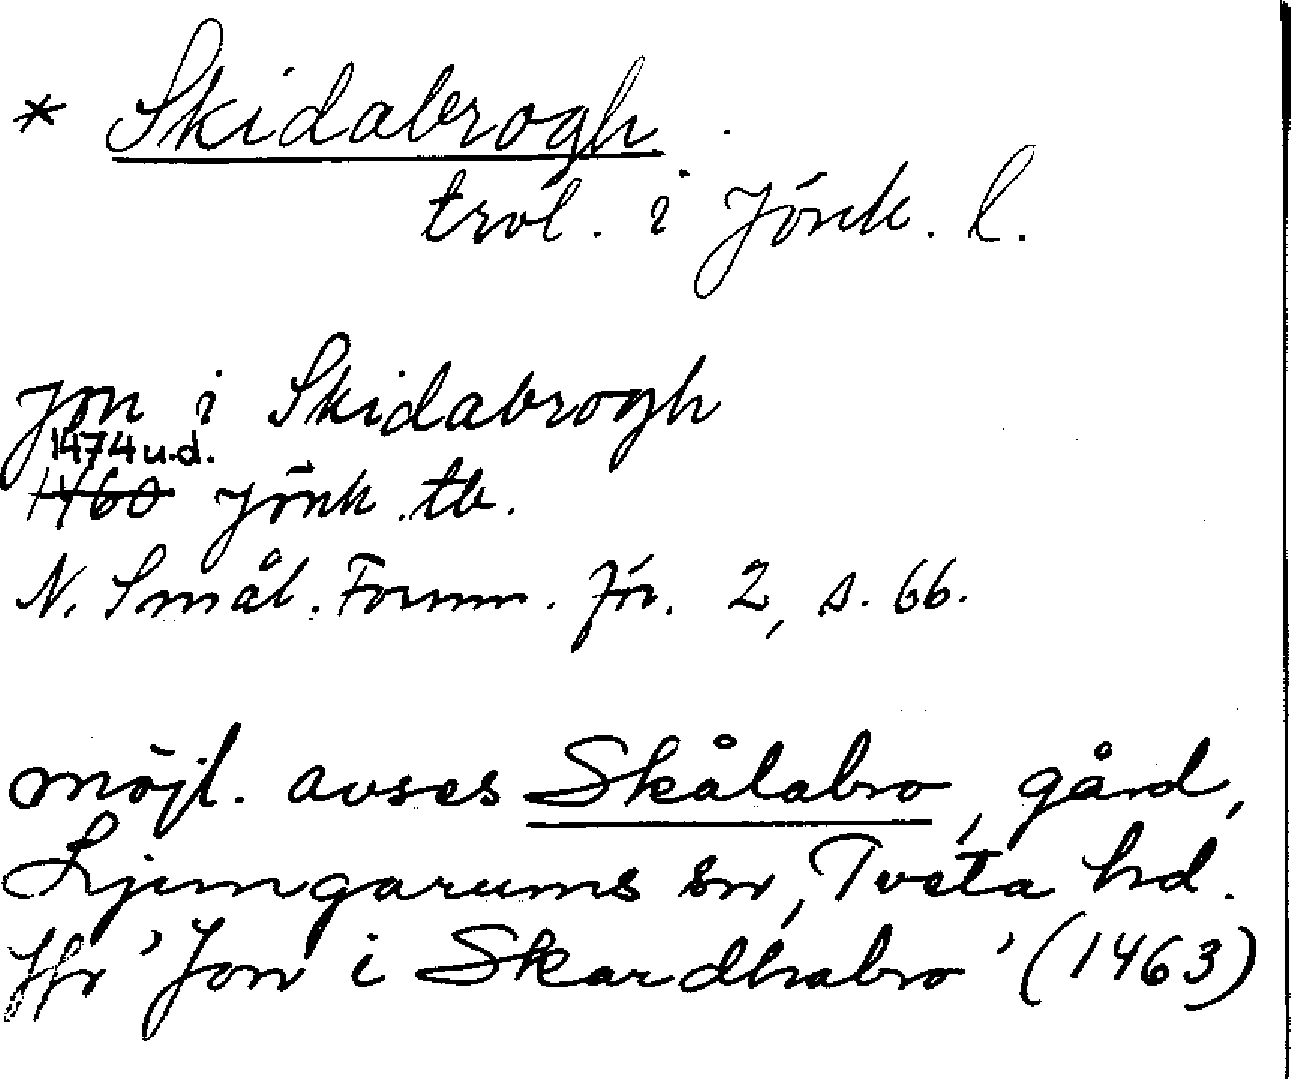 * Skidabrogh.
trol. i Jönk. l.
Jon i Skidabrogh
1474 u.d.
1460 Jönk. tb.
N. Smål. Fornm. För. 2, s. 66.
möjl. avses Skålabro, gård,
Ljungarums sn, Tveta hd.
Jfr 'Jon i Skardhabro' (1463)